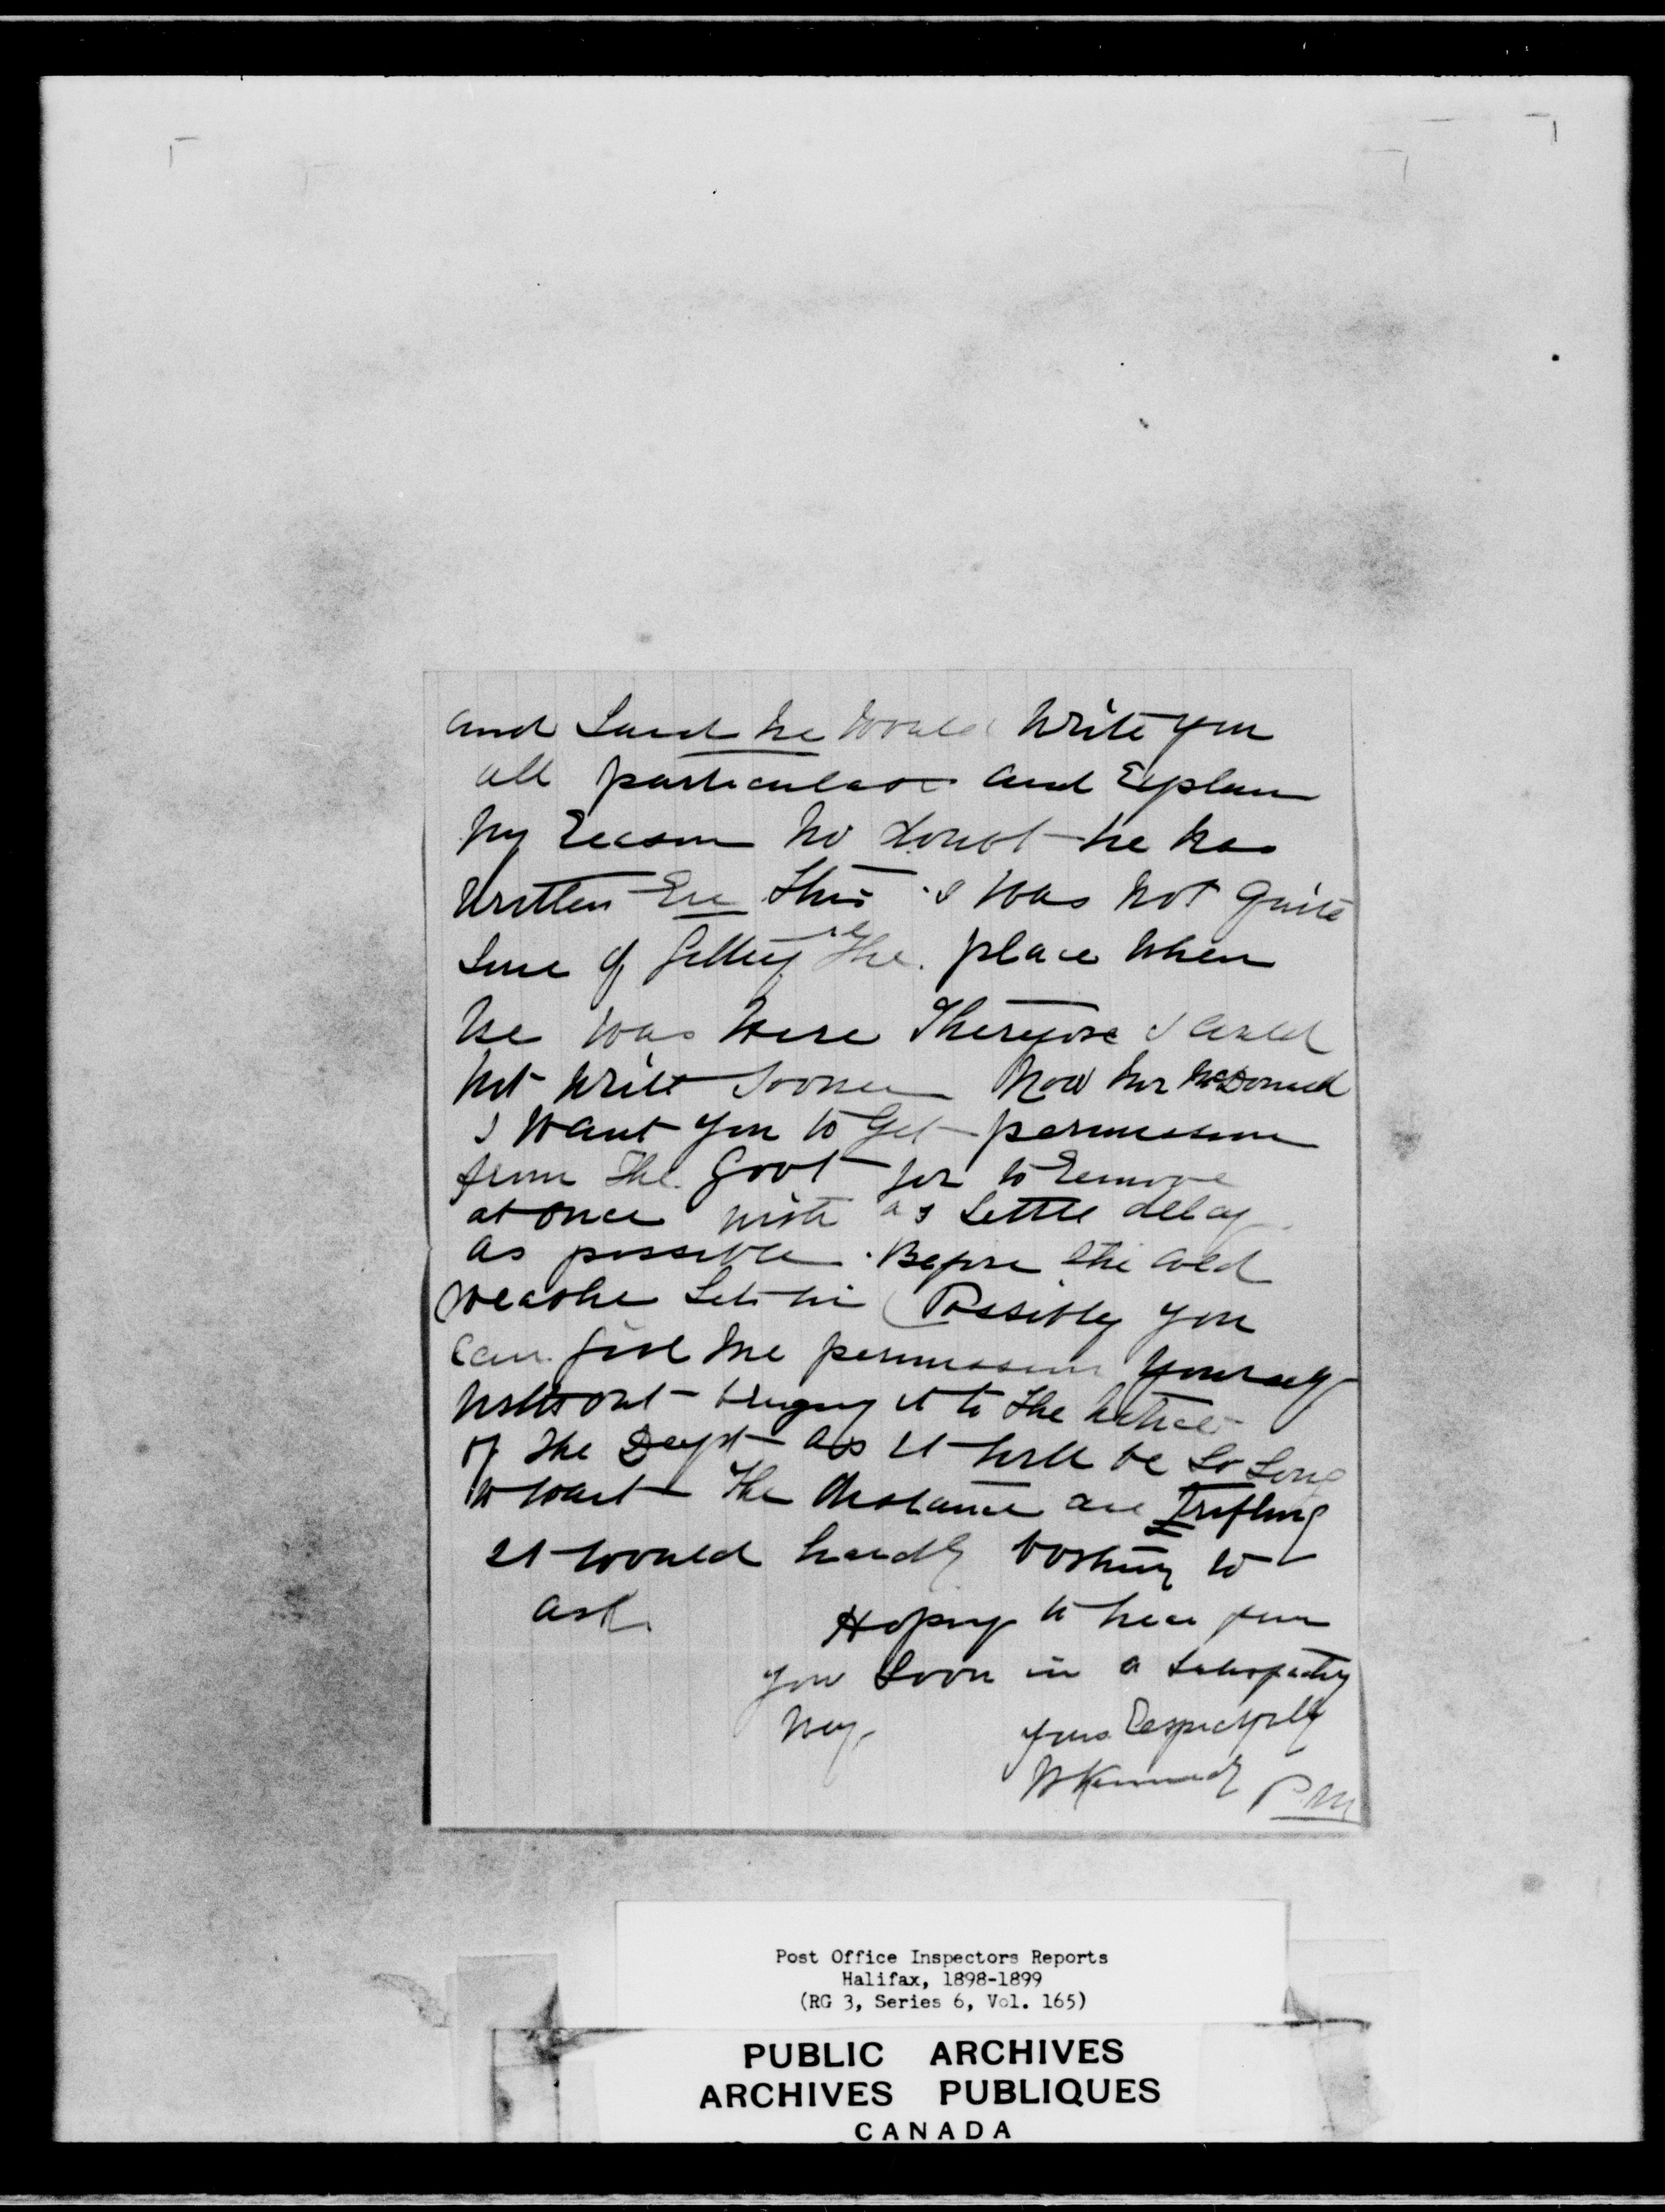 and Said he would write you
all particulars and Explain
my Reason no doubt he has
written Ere this I was not quite
sure of getting the place when
he was here Therefore I could
not write sooner Now Mr McDonald
I want you to get permission
from the Govt for to Remove
at once with as little delay
as possible. Before the cold
weather sets in Possibly you
can give me permission yourself
without bringing it to the notice
of the Dept as it will be so long
to wait The distance are Trifling
it would hardly to
ask. Hoping to hear from
you soon in a satisfactry
way. Yours Respectfully
W Kennedy P M
Post Office Inspectors Reports
Halifax, 1898-1899
(RG 3, Series 6, Vol. 165)
PUBLIC ARCHIVES
ARCHIVES PUBLIQUES
CANADA